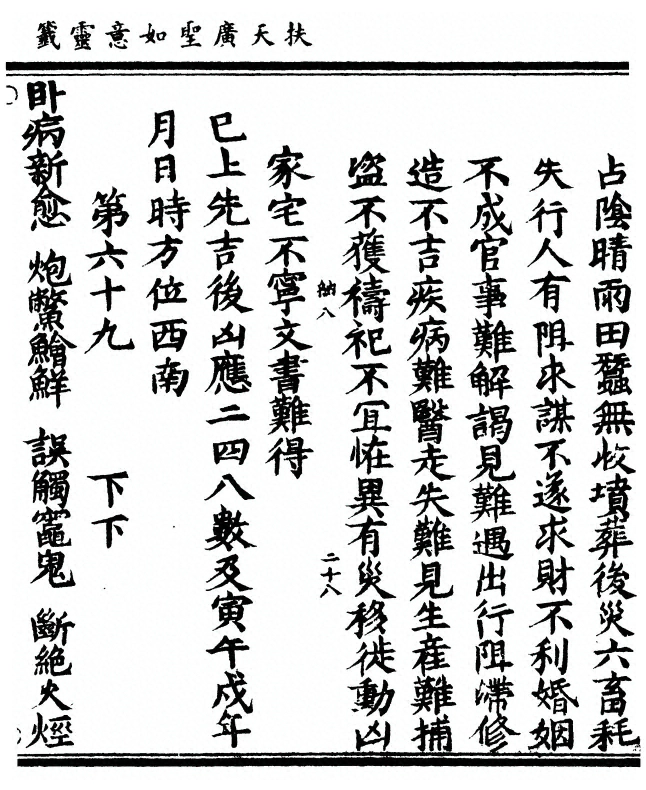 扶天廣聖如意靈籤
占陰晴雨田蠶無收墳葬後災六畜耗
失行人有阻求謀不遂求財不利婚姻
不成官事難解謁見難遇出行阻滯修
造不吉疾病難醫走失難見生產難捕
盜不獲禱祀不宜怪異有災移徙動凶
納八
二十八
家宅不寧文書難得
已上先吉後凶應二四八數及寅午戌年
月日時方位西南
第六十九 下下
臥病新愈 炮鱉鱠鮮 誤觸竈鬼 斷絶火煙